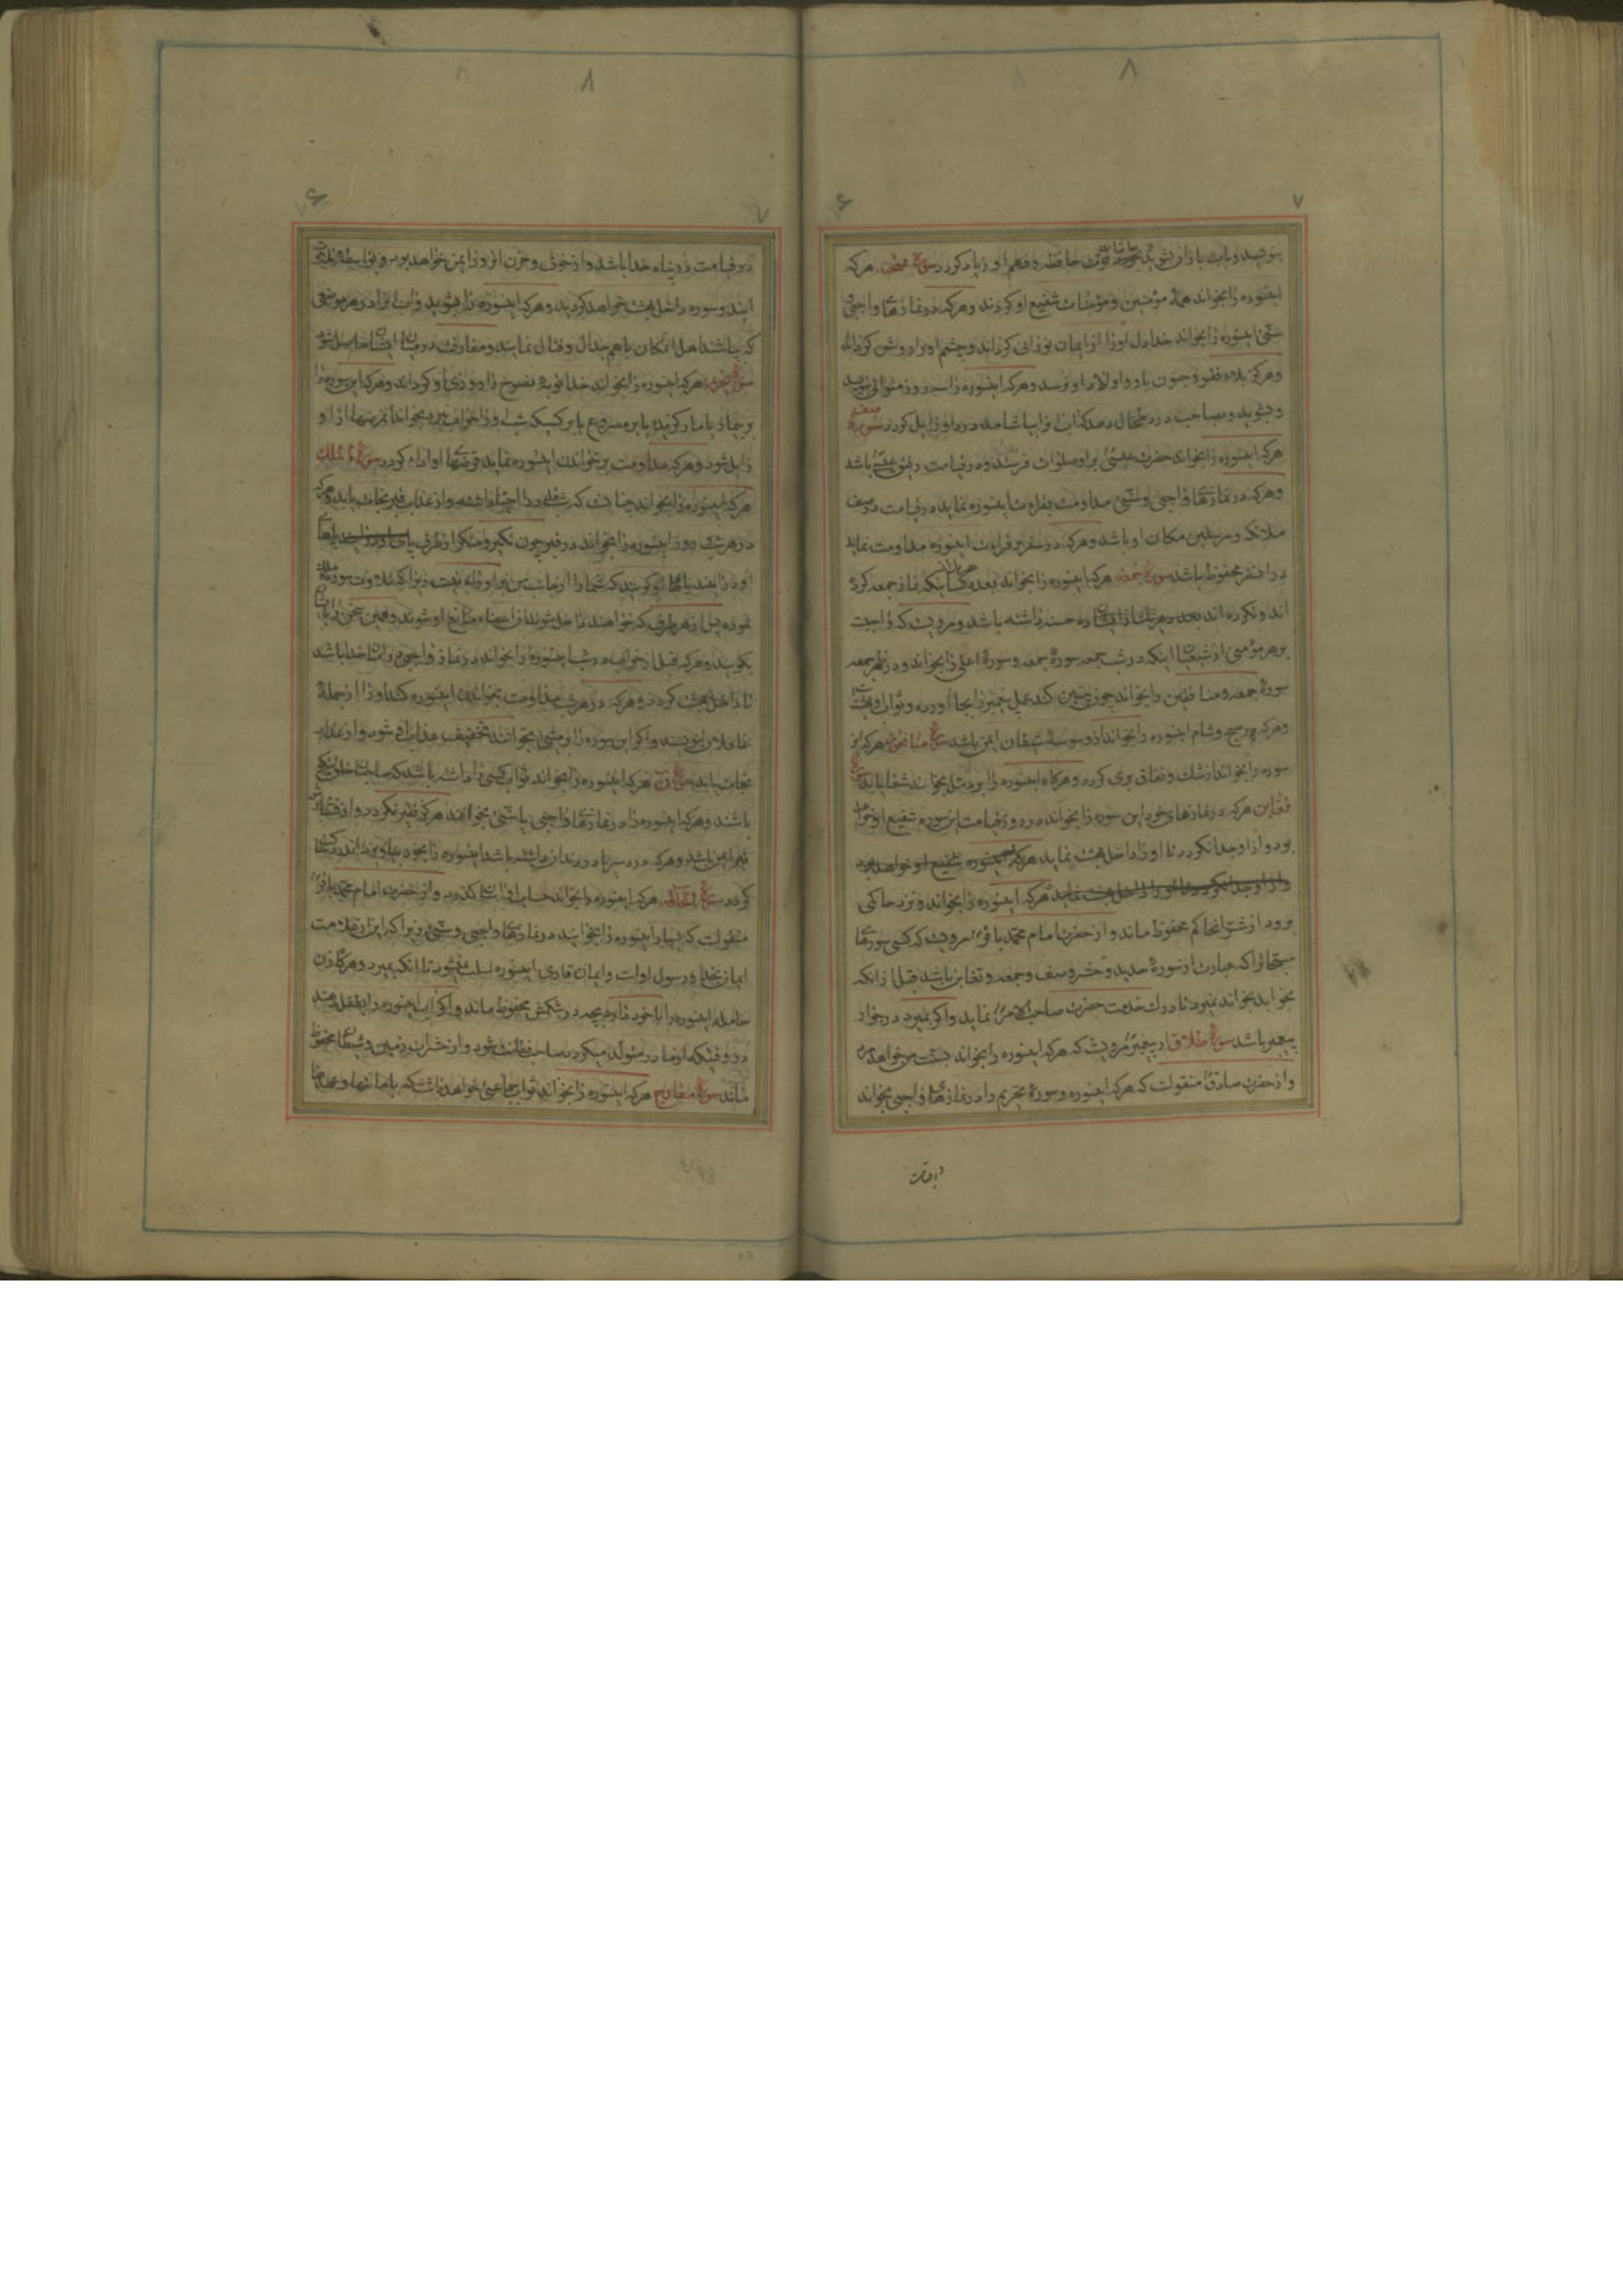 ۸
۷
۶
بنویسد و بآب باران بشوید بیاشامد قوت حافظه و فهم او زیاد کردد سورهٔ ممتحنه هرکه
اینسوره را بخواند همهٔ مؤمنین و مؤمنات شفیع او کردند و هرکه در نمازهای واجبی
سنتی اینسوره را بخواند خدا دل او را از ایمان نورانی کرداند و چشم او را روشن کرداند
و هرکز بلاء فقر و جنون باو و اولاد او نرسد و هرکه اینسوره را سه روز متوالی بنویسد
و بشوید و بصاحب درد طحال دهد که آب را بیاشامد درد او زایل کردد سورهٔ صف
هرکه اینسوره را بخواند حضرت عیسی بر او صلوات فرستد و در قیامت رفیق عیسی باشد
و هرکه در نمازهای واجبی و سنتی مداومت بقراءت اینسوره نماید در قیامت در صف
ملائکه و مرسلین مکان او باشد و هرکه در سفر بر قراءت اینسوره مداومت نماید
در آن سفر محفوظ باشد سورهٔ جمعه هرکه اینسوره را بخواند بعدد کسانیکه نماز جمعه کرده
اند و نکرده اند بعدد هریک از ایشان ده حسنه داشته باشد و مرویست که واجبست
بر هر مؤمنی از شیعیان اینکه در شب جمعه سورهٔ جمعه و سورهٔ اعلی را بخواند و در ظهر جمعه
سورهٔ جمعه و منافقین را بخواند چون چنین کند عمل پیغمبر را بجا آورده و ثواب او بهشت
و هرکه هر صبح و شام اینسوره را بخواند از وسوسهٔ شیطان ایمن باشد سورهٔ منافقون هرکه این
سوره را بخواند از شک و نفاق بری کردد و هرکاه اینسوره را بر دمل بخوانند شفا یابد سورهٔ
تغابن هرکه در نمازهای خود این سوره را بخواند در روز قیامت این سوره شفیع او خواهد
بود و از او جدا نکردد تا او را داخل بهشت نماید هرکه اینسوره شفیع او خواهد بود
و از او جدا نکردد تا او را داخل بهشت نماید هرکه اینسوره را بخواند و نزد حاکمی
برود از شر انحاکم محفوظ ماند و از حضرت امام محمد باقر مرویست که کسی سورهای
مسبحات را که عبارت از سورهٔ حدید و حشر و صف و جمعه و تغابن باشد قبل از انکه
بخوابد بخواند نمیرد تا درک خدمت حضرت صاحب الامر نماید و اکر بمیرد در جوار
پیغمبر باشد سورهٔ طلاق از پیغمبر مرویست که هرکه اینسوره را بخواند بسنت من خواهد مرد
و از حضرت صادق منقولست که هرکه اینسوره و سورهٔ تحریم را در نمازهای واجبی بخواند
در قیامت
۸
۷
۶
در قیامت در پناه خدا باشد و از خوف و حزن انروز ایمن خواهد بود و بواسطهٔ تلاوت
این دو سوره داخل بهشت خواهد کردید و هرکه اینسوره را بشوید و آب آنرا در هر موضعی
که بپاشند اهل انمکان با هم جدال و قتال نمایند و مفارقت در میان ایشان حاصل شود
سورهٔ تحریم هرکه اینسوره را بخواند خدا توبهٔ نصوح را روزی او کرداند و هرکه این سوره را
بر بیمار یا مار کزیده یا بر مصروع یا بر کسیکه شب او را خواب نبرد بخواند مرضها از او
زایل شود و هرکه مداومت بر خواندن اینسوره نماید قرضهای او اداء کردد سورهٔ ملک
هرکه اینسوره را بخواند چنانست که شب قدر را احیا داشته و از عذاب قبر نجات یابد و هرکه
در هر شب و روز اینسوره را بخواند در قبر چون نکیر و منکر از طرف پای او در ایند پاهای
او در ایند پاها او کویند که شما را از جانب من بر او راه نیست زیرا که تلاوت سورهٔ ملک
نموده پس از هر طرف که خواهند داخل شوند ان اعضاء مانع او شوند و همین سخن را بایشان
بکویند و هرکه قبل از خواب در شب اینسوره را بخواند در نماز واجبی در امان خدا باشد
تا داخل بهشت کردد و هرکه در هر شب مداومت بخواندن اینسوره کند او را از جملهٔ
غافلان ننویسند و اکر این سوره را بر میتی بخوانند تخفیف عذاب او شود و از عذاب
نجات یابد سورهٔ ن هرکه اینسوره را بخواند ثواب کسی داشته باشد که صاحب خلق نیکو
باشند و هرکه اینسوره را در نمازهای واجبی یا سنتی بخواند هرکز فقیر نکردد و از فشار
قبر ایمن باشد و هرکه درد سر یا درد دندان داشته باشد اینسوره را با خود بیاویزد
کردد سورهٔ الحاقه هرکه اینسوره را بخواند حساب او اسان کذرد و از حضرت امام محمد باقر
منقولست که بسیار اینسوره را بخوانید در نمازهای واجبی و سنتی زیرا که این از علامت
ایمان بخدا و رسول اوست و ایمان قاری اینسوره سلب نمیشود تا انکه بمیرد و هرکاه زن
حامله اینسوره را با خود دارد بچه در شکمش محفوظ ماند و اکر آب اینسوره را بطفل دهند
در وقتیکه از مادر متولد میکردد صاحب فطانت شود و از حشرات زمین و شیطان محفوظ
ماند سورهٔ معارج هرکه اینسوره را بخواند ثواب جماعتی خواهد داشت که بامانتها و عهدها